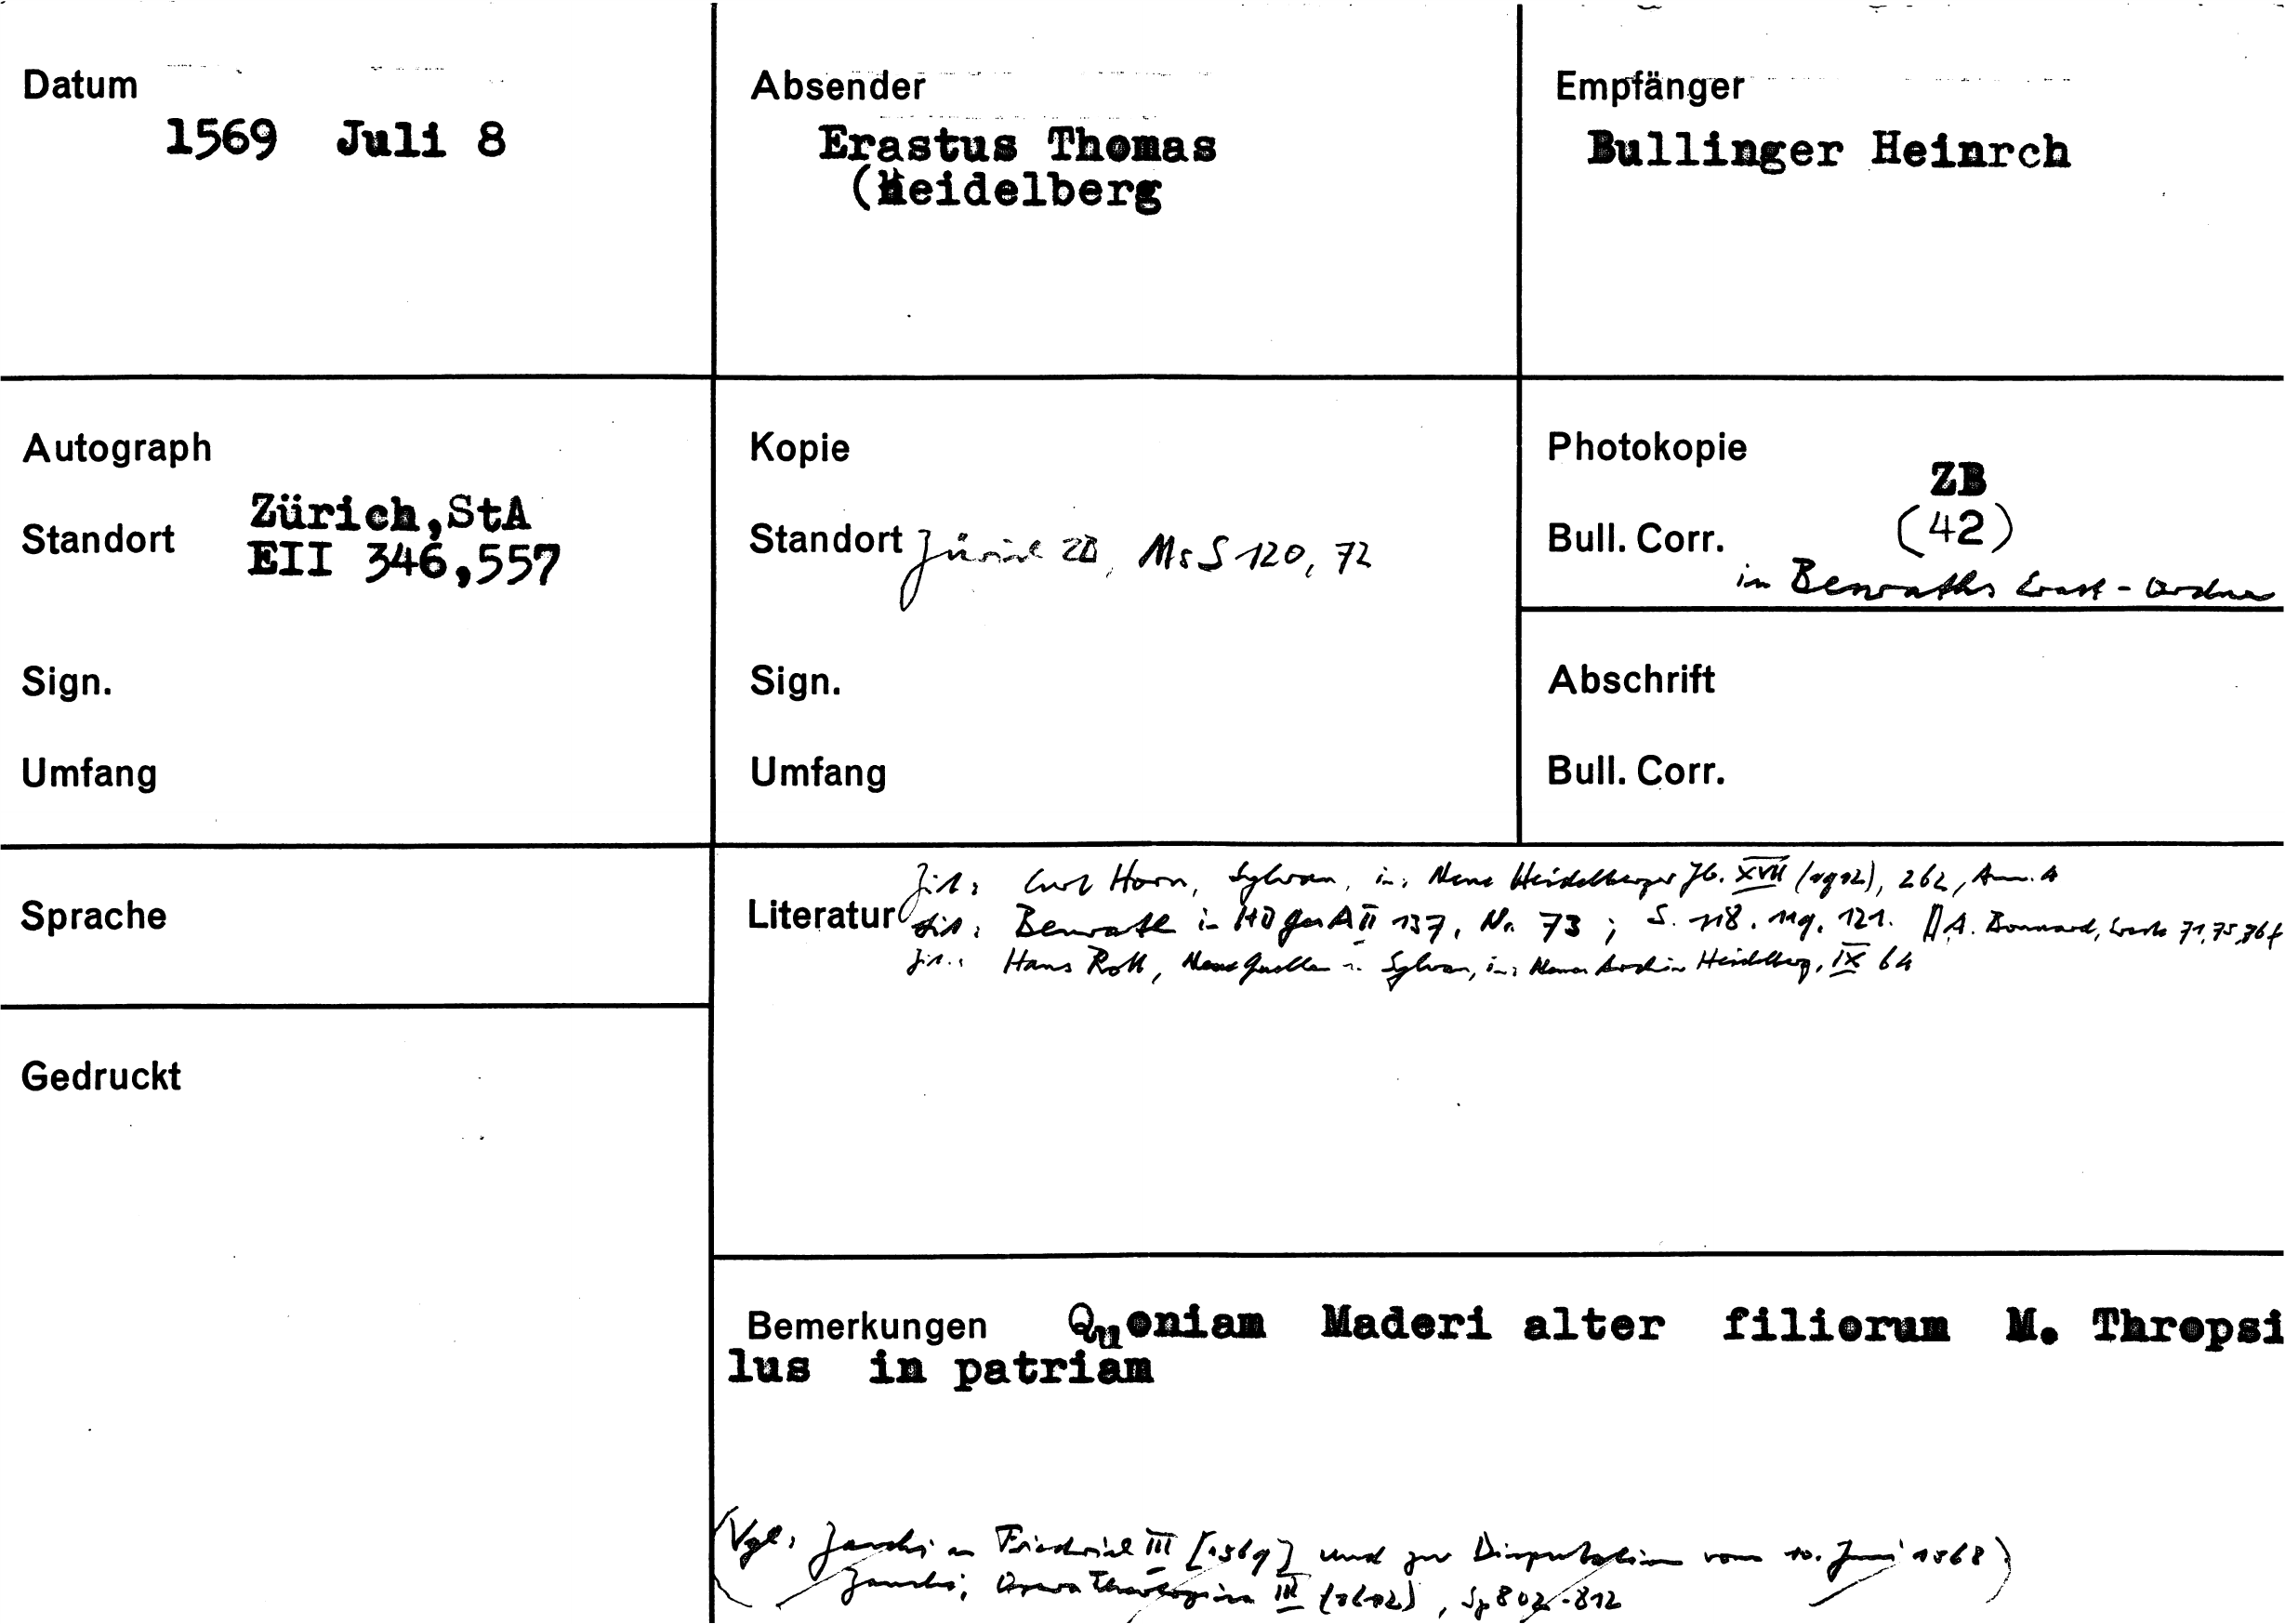 Datum
1569 Juli 8
Absender
Erastus Thomas
(Heidelberg
Empfänger
Bullinger Heinrch
Autograph
Standort Zürich,StA
EII 346,557
Sign.
Umfang
Kopie
Standort Zürich ZB, Ms S 120, 72
Sign.
Umfang
Photokopie
ZB
Bull. Corr. (42)
in Benraths Erast-Ordner
Abschrift
Bull. Corr.
Sprache
Gedruckt
Zit: Curt Horn, Sylvan, in: Neue Heidelberger Jb. XVII (1912), 262, Anm. 4
Literatur Zit: Benrath in 137, Nr. 73; S. 118. 119. 121. A. Bonnard, 71,75,76f
Zit.: Hans Rott, Neue Quellen Sylvan, in: Neues Archiv Heidelberg, IX 64
Bemerkungen Quoniam Maderi alter filiorum M. Thropsi
lus in patriam
(Vgl. Zanchi an Friedrich III [1569] und zur Disputation vom 10. Juni 1568)
Zanchi, Opera Theologica III, Sp 802-812